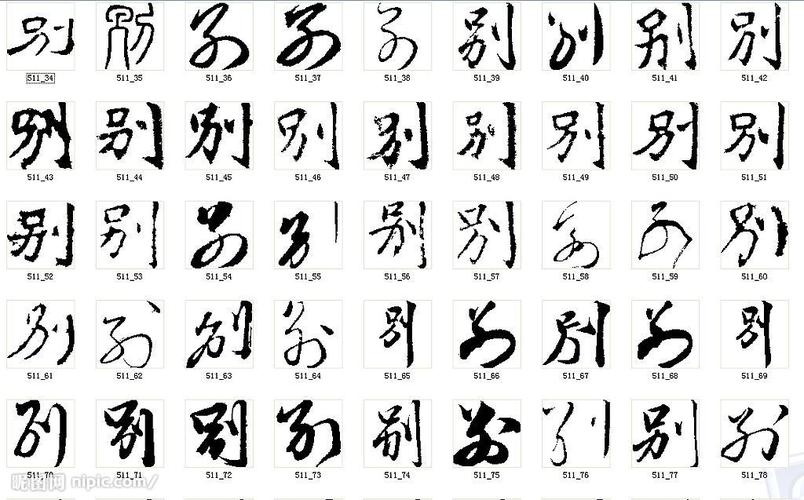 别 别 别 别 别 别 别 别 别
511_34 511_35 511_36 511_37 511_38 511_39 511_40 511_41 511_42
别 别 别 别 别 别 别 别 别
511_43 511_44 511_45 511_46 511_47 511_48 511_49 511_50 511_51
别 别 别 别 别 别 别 别 别
511_52 511_53 511_54 511_55 511_56 511_57 511_58 511_59 511_60
别 别 别 别 别 别 别 别 别
511_61 511_62 511_63 511_64 511_65 511_66 511_67 511_68 511_69
别 别 别 别 别 别 别 别 别
511_70 511_71 511_72 511_73 511_74 511_75 511_76 511_77 511_78
昵图网 nipic.com/